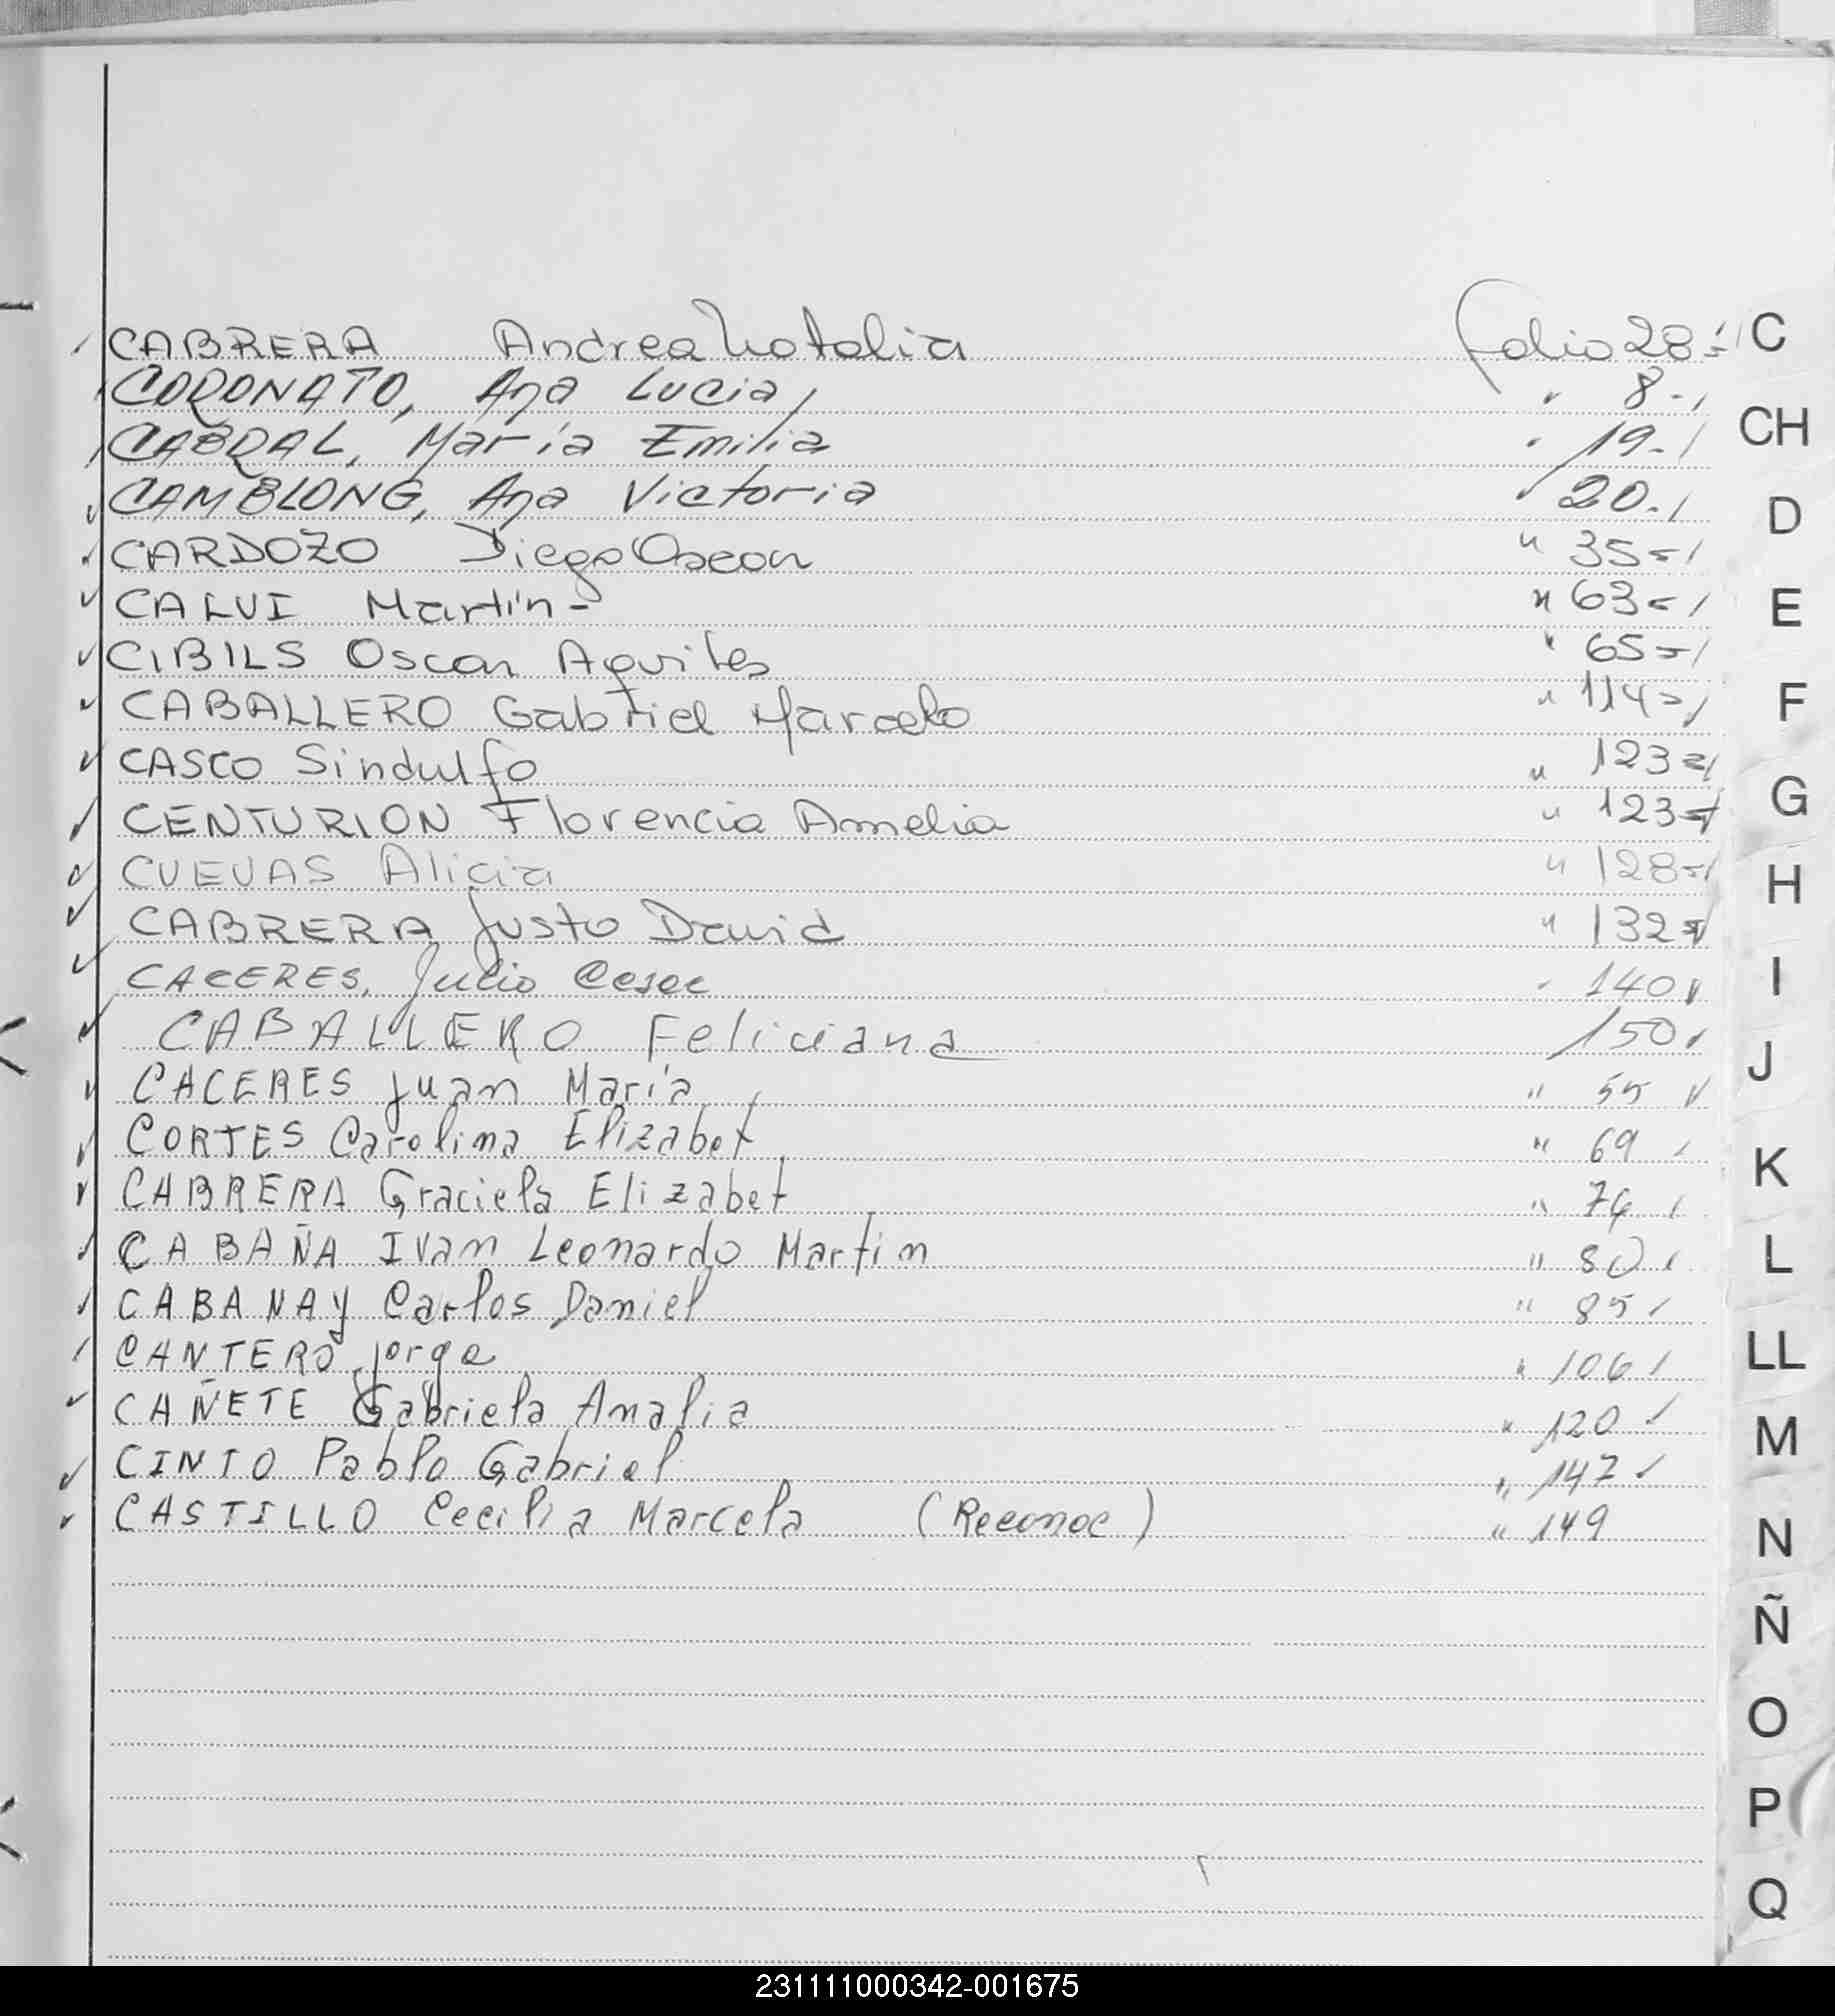 CABRERA Andrea Natalia folio 28=
CORONATO, Ana Lucia " 8-
CABRAL, María Emilia " 19-
CAMBLONG, Ana Victoria " 20-
CARDOZO Diego Oscar " 35=
CALVI Martín - " 63=
CIBILS Oscar Aquiles " 65=
CABALLERO Gabriel Marcelo " 114=
CASCO Sindulfo " 123=
CENTURION Florencia Amelia " 123=
CUEVAS Alicia " 128=
CABRERA Justo David " 132=
CACERES, Julio Cesar " 140
CABALLERO Feliciana 150
CACERES Juan María " 55
CORTES Carolina Elizabet " 69
CABRERA Graciela Elizabet " 74
CABAÑA Ivan Leonardo Martin " 80
CABANAY Carlos Daniel " 85
CANTERO Jorge " 106
CAÑETE Gabriela Amalia " 120
CINTO Pablo Gabriel " 147
CASTILLO Cecilia Marcela (Reconoc) " 149
C
CH
D
E
F
G
H
I
J
K
L
LL
M
N
Ñ
O
P
Q
231111000342-001675